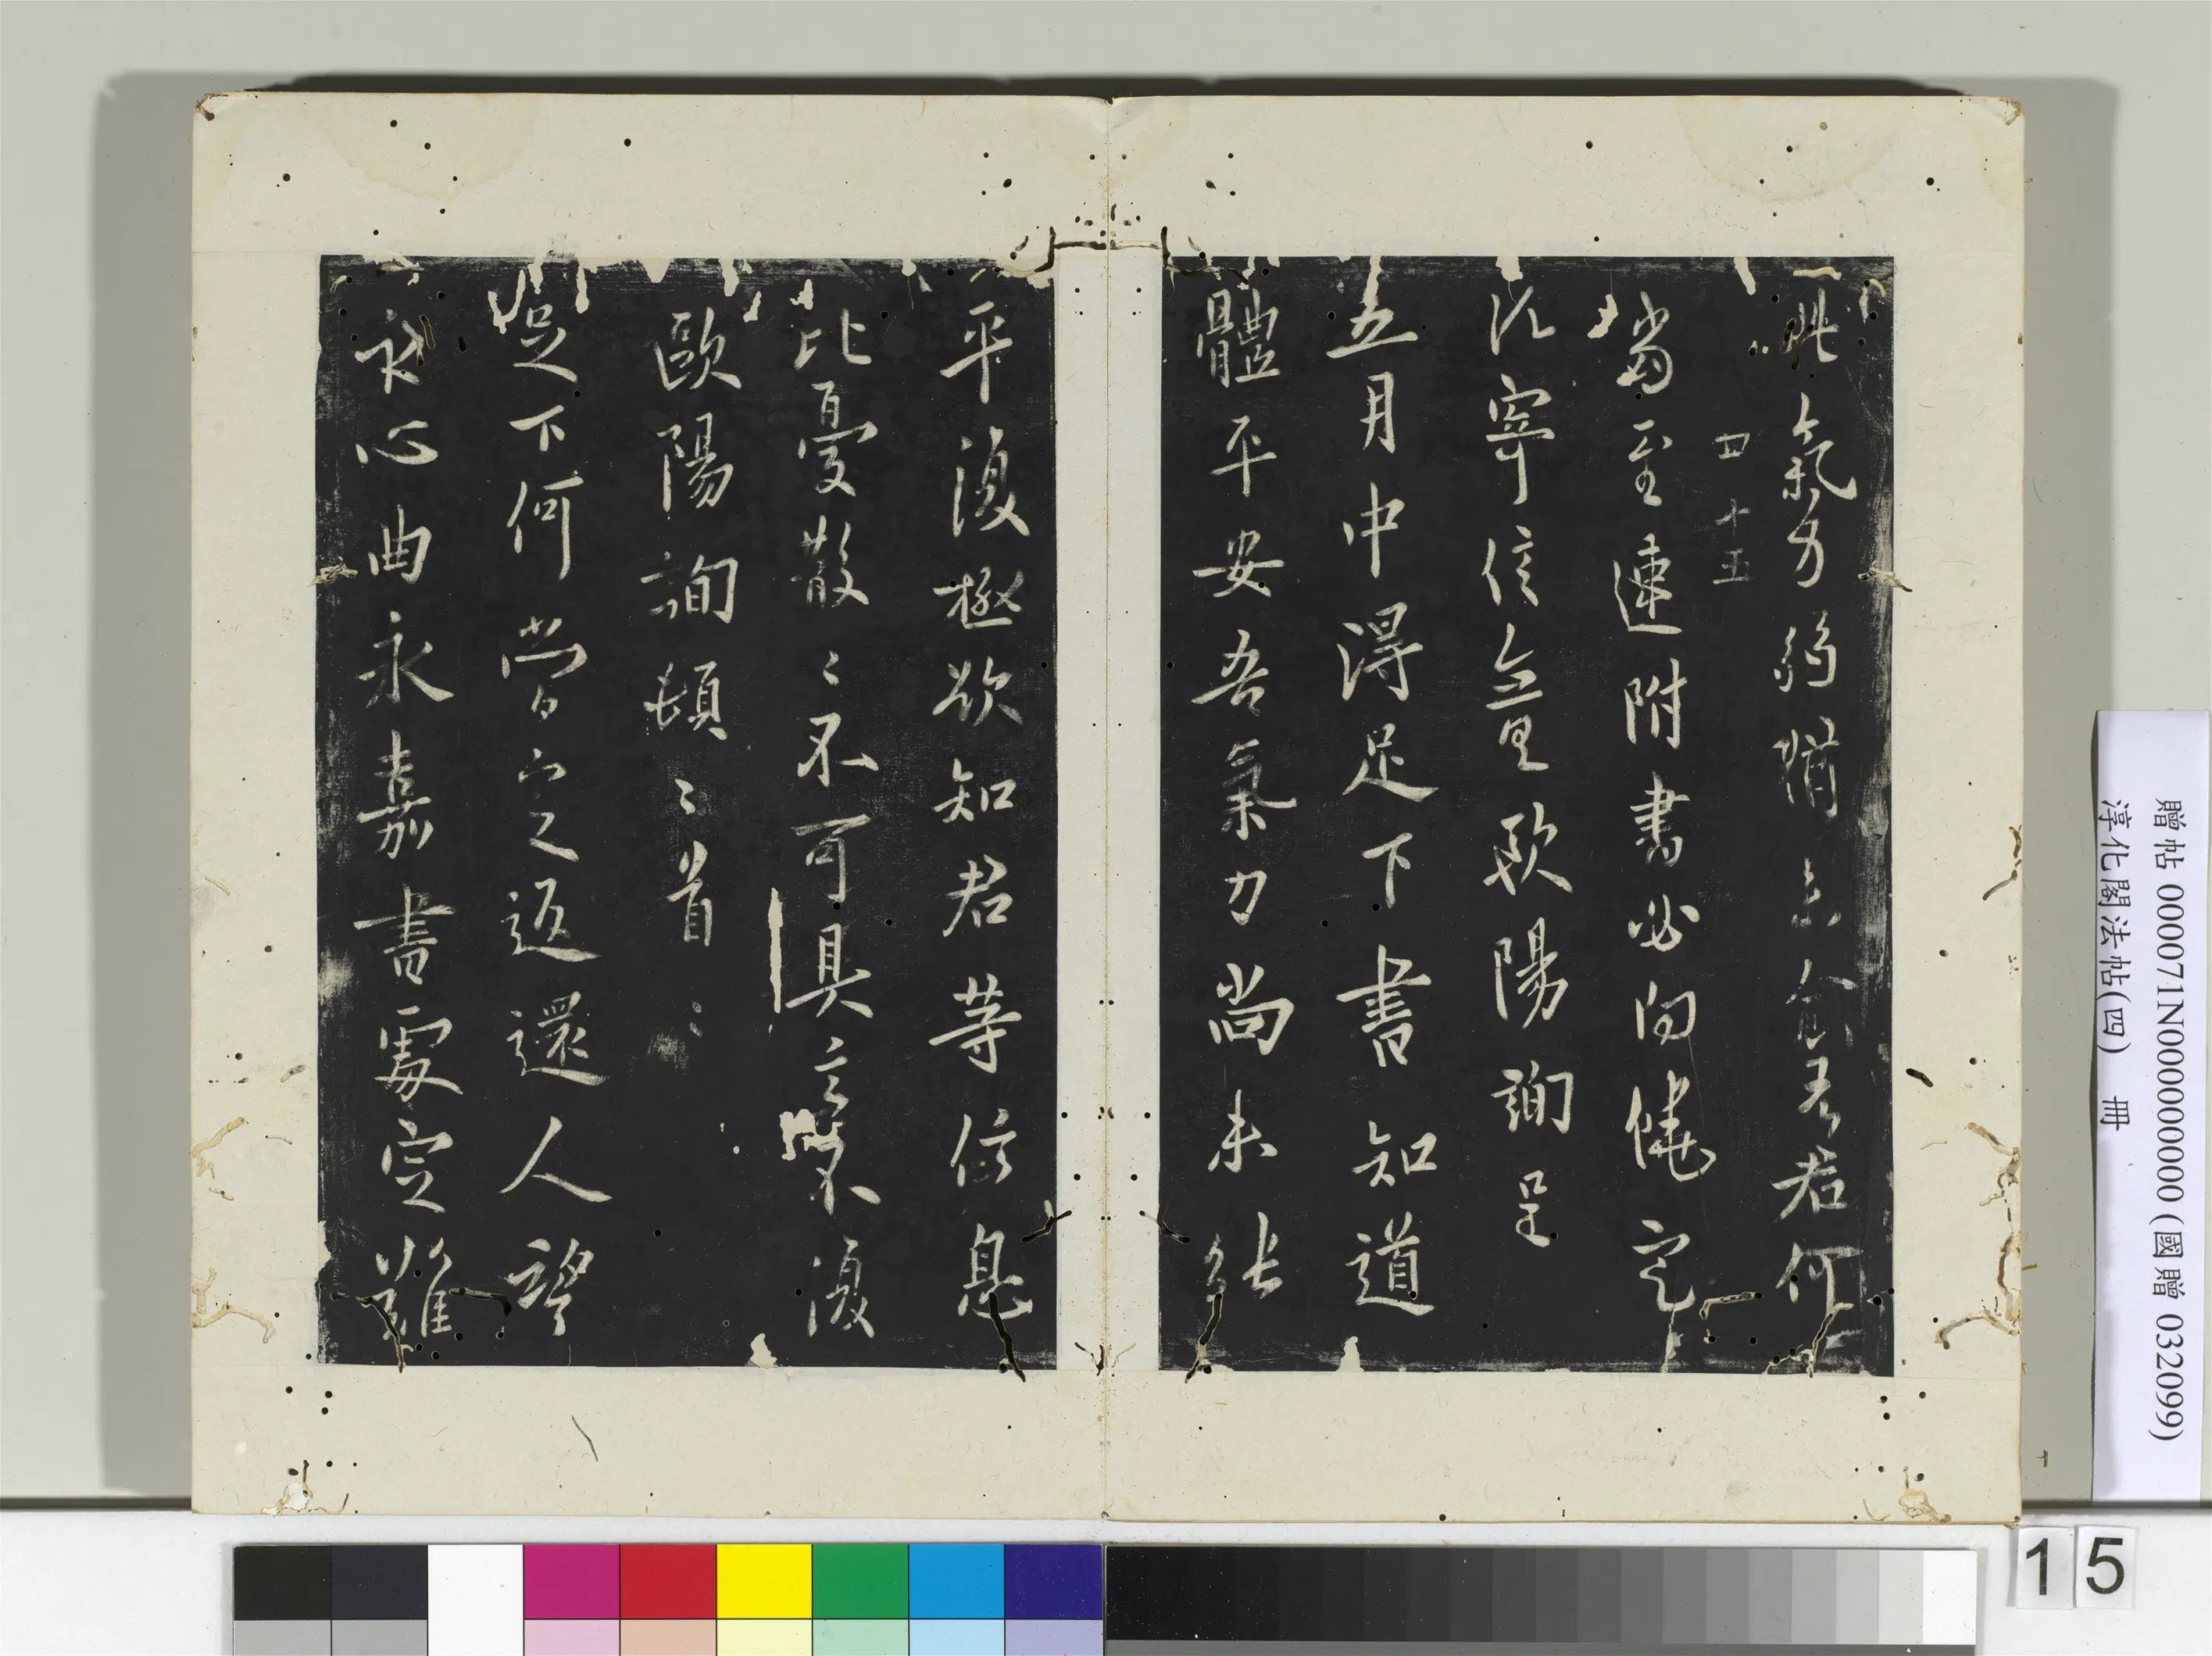 此氣力弱猶未愈吾君何
當至速附書必向饒定
四 十五
汎寧信无量歐陽詢呈
五月中得足下書知道
體平安吾氣力尚未能
平復極欲知君等信息
比憂散〻不可具言不復
歐陽詢頓〻首〻
足下何當定之返還人望
示心曲永嘉書處定難
贈帖 000071N000000000 (國贈 032099)
淳化閣法帖(四) 冊
15